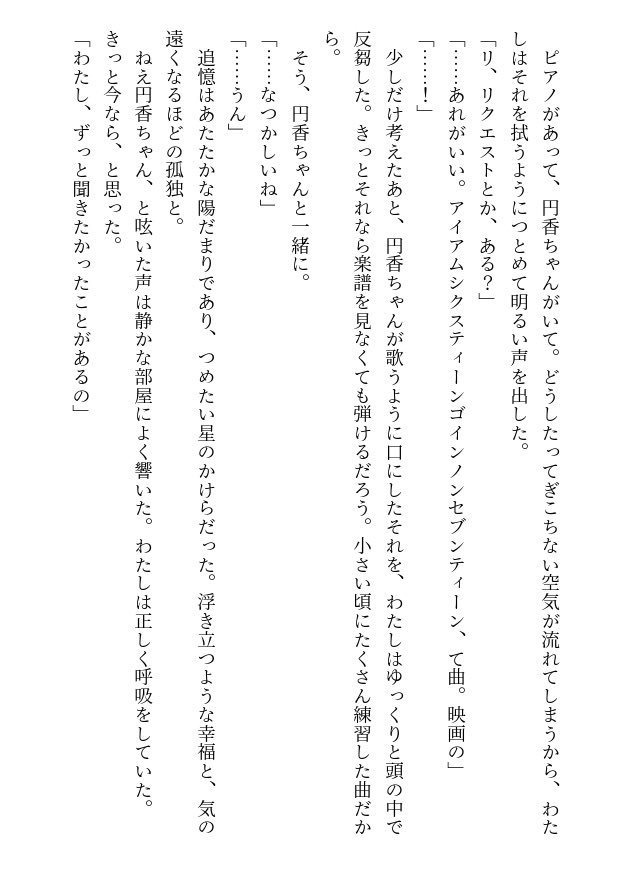 ピアノがあって、円香ちゃんがいて。どうしたってぎこちない空気が流れてしまうから、わた
しはそれを拭うようにつとめて明るい声を出した。
「リ、リクエストとか、ある？」
「……あれがいい。アイアムシクスティーンゴインノンセブンティーン、て曲。映画の」
「……！」
　少しだけ考えたあと、円香ちゃんが歌うように口にしたそれを、わたしはゆっくりと頭の中で
反芻した。きっとそれなら楽譜を見なくても弾けるだろう。小さい頃にたくさん練習した曲だか
ら。
　そう、円香ちゃんと一緒に。
「……なつかしいね」
「……うん」
　追憶はあたたかな陽だまりであり、つめたい星のかけらだった。浮き立つような幸福と、気の
遠くなるほどの孤独と。
　ねえ円香ちゃん、と呟いた声は静かな部屋によく響いた。わたしは正しく呼吸をしていた。
きっと今なら、と思った。
「わたし、ずっと聞きたかったことがあるの」